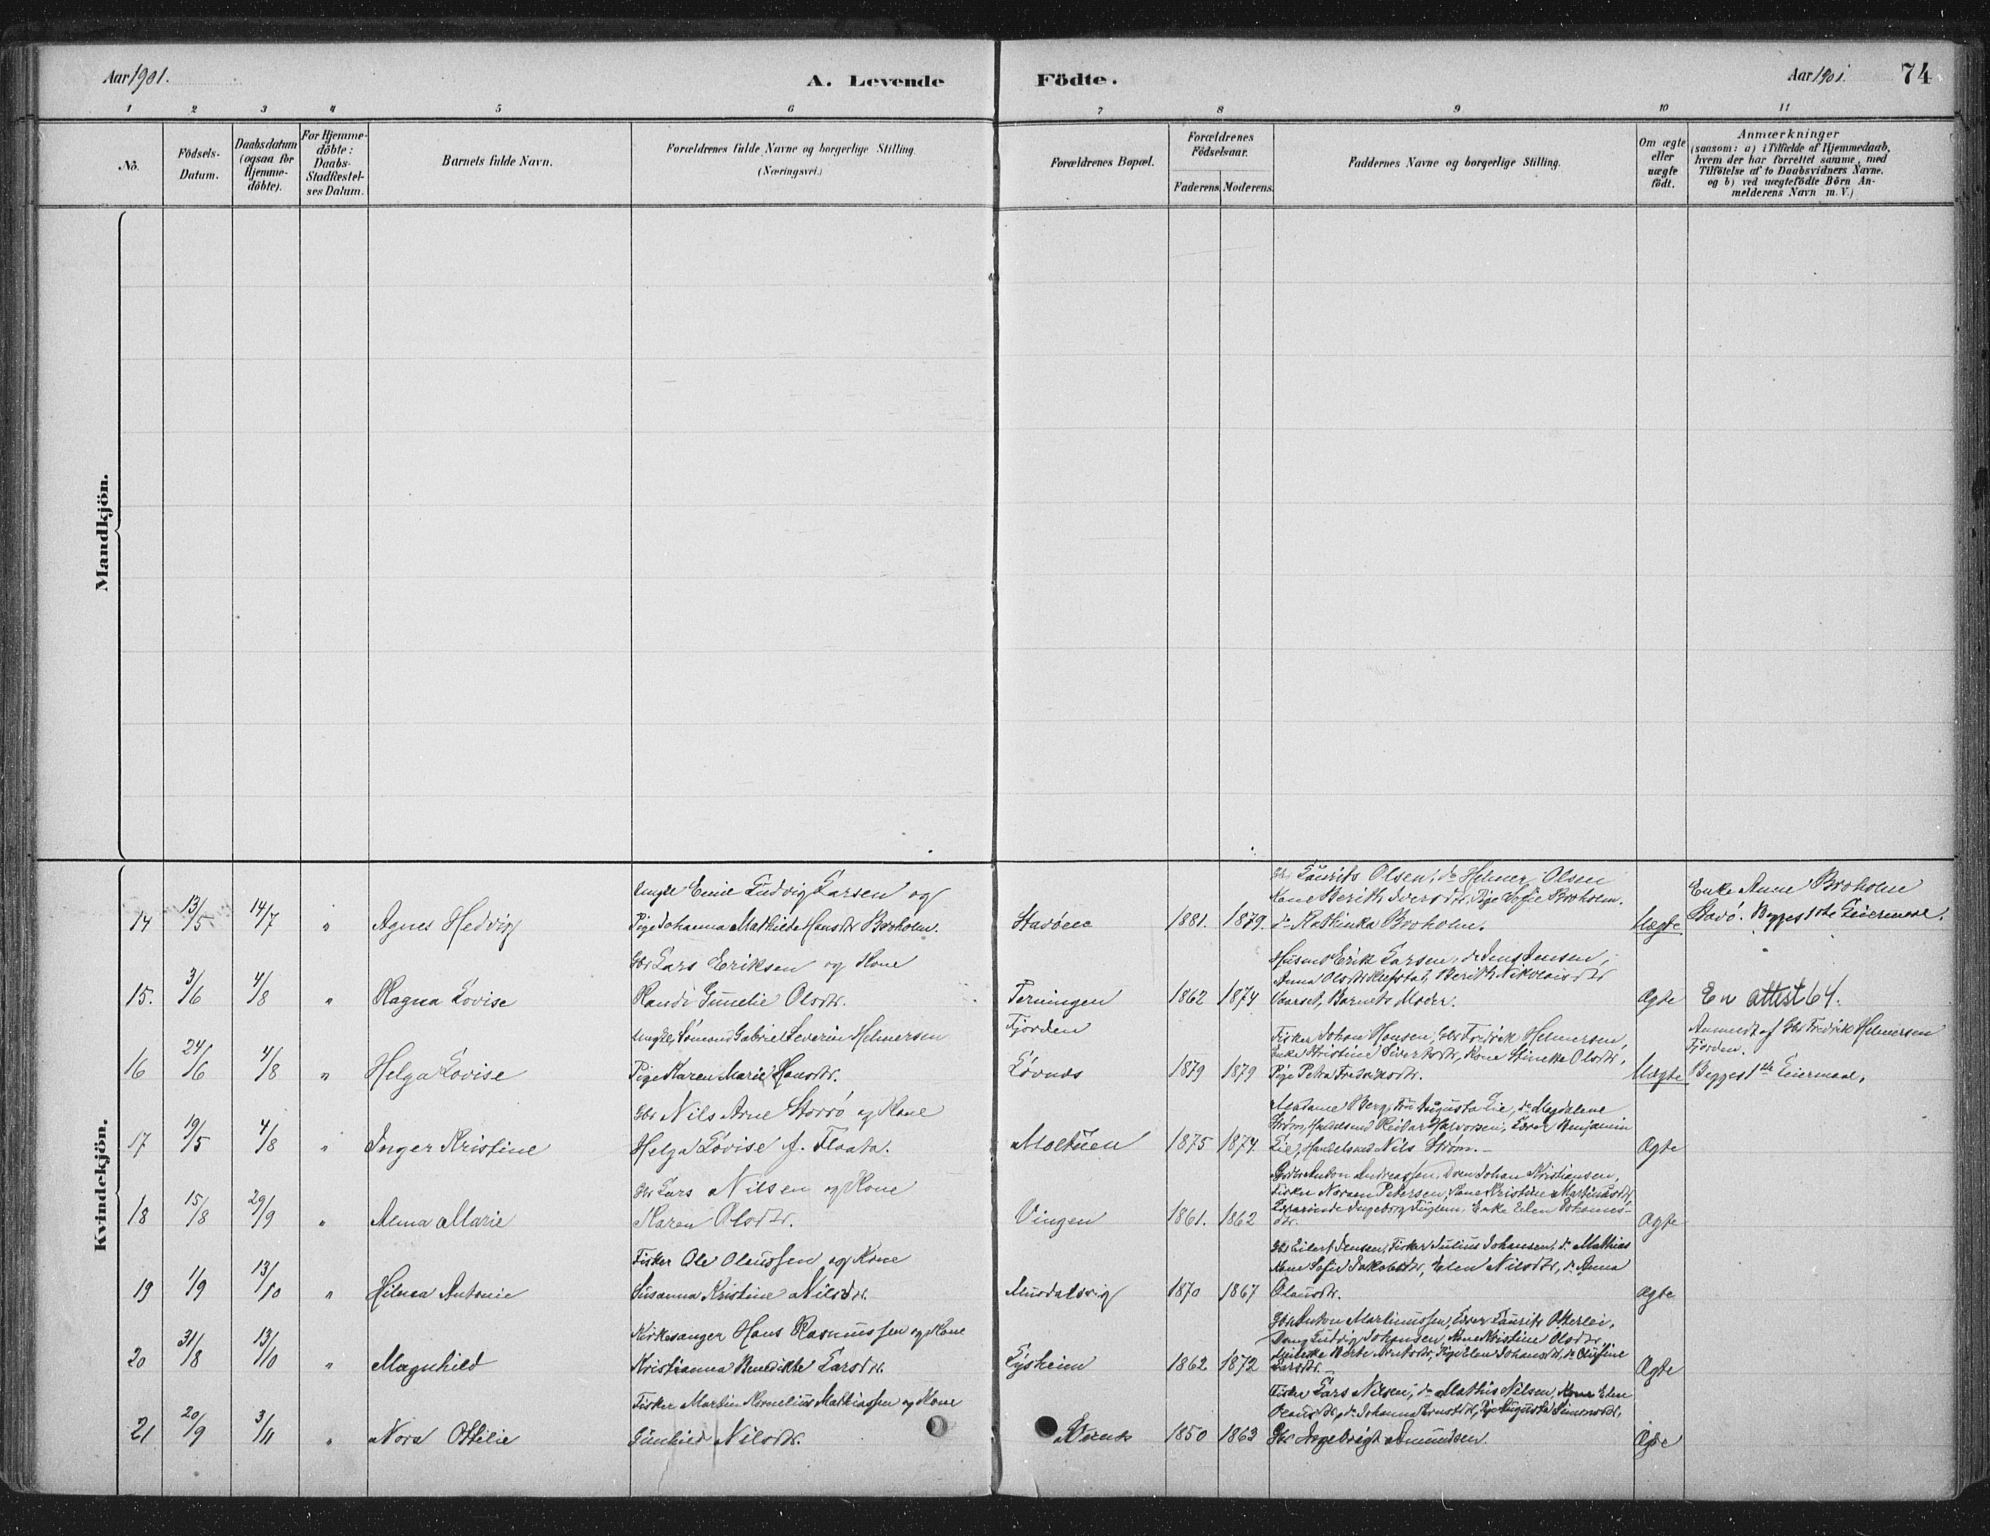 Aar 1901.
A. Levende Födte.
Aar 1901.
74
1 2 3 4 5 6 7 8 9 10 11
No.
Födsels-
Datum.
Daabsdatum
(ogsaa for
Hjemme-
döbte).
For Hjemme-
döbte:
Daabs-
Stadfæstel-
ses Datum.
Barnets fulde Navn.
Forældrenes fulde Navne og borgerlige Stilling.
(Næringsvei.)
Forældrenes Bopæl.
Forældrenes
Födselsaar.
Faderens. Moderens.
Faddernes Navne og borgerlige Stilling.
Om ægte
eller
uægte
födt.
Anmærkninger
(saasom: a) i Tilfælde af Hjemmedaab,
hvem der har forrettet samme, med
Tilföielse af to Daabsvidners Navne.
og b) ved uægtefödte Börn An-
melderens Navn m. V.)
Mandkjön.
Kvindekjön.
14
13/5
14/7
"
Agnes Hedvig
Ungk. Emil Ludvig Larsen og
Pige Johanna Mathilde Hansdtr Broholm.
Stavöen
1881. 1879.
Gbr. Laurits Olsen, do Helmer Olsen
Kone Berith Iversdtr, Pige Sofie Broholm.
do Kathinka Broholm.
Uægte
Enke Anne Broholm
Stavö. Begges 1ste Leiermaal.
15.
3/6
4/8
"
Ragna Lovise
Gbr Lars Eriksen og Kone
Randi Gunelie Olsdtr.
Terningen
1862 1874
Husmd Erik Larsen, do Jens Jensen,
Anna Olsdtr Refstat, Berith Nikolaisdtr
Vaarset, Barnets Moder.
Ægte
En attest 64.
16
24/6
4/8
"
Helga Lovise
Ungk. Sömand Gabriel Severin Helmersen
Pige Karen Marie Hansdtr.
Fjorden
Lövnds
1879 1879
Fisker Johan Hansen, Gbr Fredrik Helmersen,
Enke Kristine Sivertsdtr, Kone Olsdtr,
Pige Petra Fredriksdtr.
Uægte
Anmeldt af Gbr Fredrik Helmersen
Fjorden.
Begges 1ste Leiermaal.
17
19/5
4/8
"
Inger Kristine
Gbr Nils Arne Storrö og Kone
Helga Lovise f. Floata.
1875 1874
Madame Berg, Fru Augusta Lie, do Magdalene
Ström, Handelsmd Reidar Halvorsen, Lærer Benjamin
Lie, Handelsmd Nils Ström.
Ægte
18
15/8
29/9
"
Alma Marie
Gbr Lars Nilsen og Kone
Karen Olsdtr.
Vingen
1861. 1862
Gbr Anton Andreassen, Johan Kristiansen,
Fisker Petersen, Kone Kristine Martinusdtr,
Lærerinde Ingeborg Fuglem, Enke Elen Johannes-
dtr.
Ægte
19
1/9
13/10
"
Hilma Antonie
Fisker Ole Olaussen og Kone
Susanna Kristine Nilsdtr.
1870 1867
Gbr Eilert Jensen, Fisker Julius Johansen, do Mathias
Kone Sofie Jakobsdtr, Elen Nilsdtr, do Anna
Olausdtr.
Ægte
20
31/8
13/10
"
Magnhild
Kirkesanger Hans Rasmussen og Kone
Kristianna Benedikte Larsdtr.
Lysheim
1862 1872
Gbr Anton Martinussen, Lærer Laurits Otterlei,
Ludvig Johansen, Kone Kristine Olsdtr,
Larsdtr.
Ægte
21
20/9
3/11
"
Nora Ottilie
Fisker Martin Kornelius Mathiassen og Kone
Gunhild Nilsdtr.
1850 1863
Fisker Lars Nilsen, do Mathis Nilsen, Kone Elen
Olausdtr, do Johanna Arntsdtr, Pige Augusta Simonsdtr,
Gbr Ingebrigt Amundsen.
Ægte